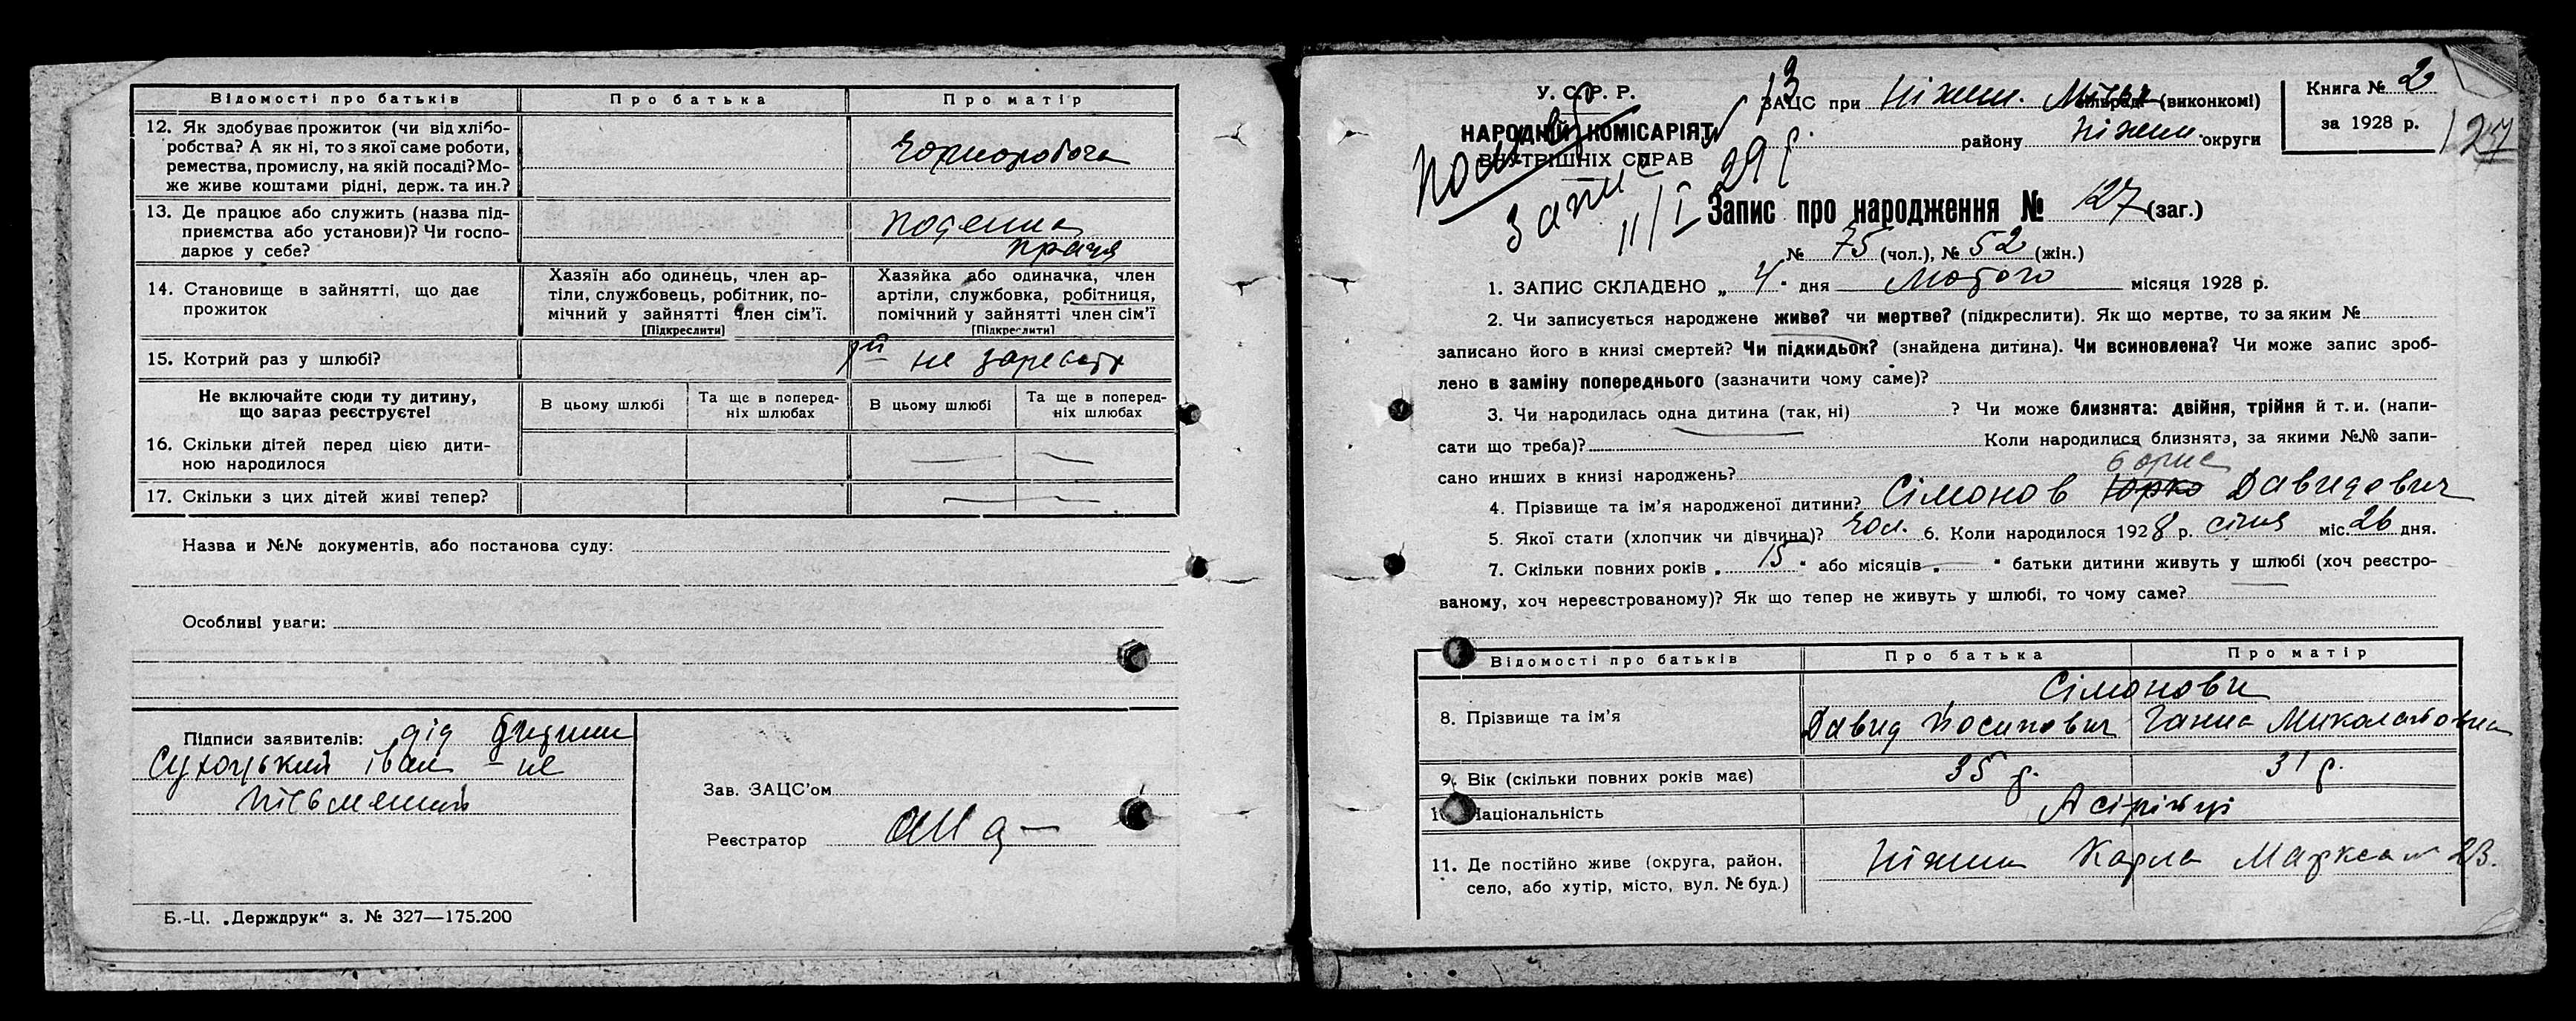 Відомості про батьків Про батька Про матір
12. Як здобуває прожиток (чи від хлібо-
робства? А як ні, то з якої саме роботи,
ремества, промислу, на якій посаді? Мо-
же живе коштами рідні, держ. та ин.?
Чорноробоча
13. Де працює або служить (назва під-
приємства або установи)? Чи госпо-
дарює у себе?
поденна
праця
14. Становище в зайнятті, що дає
прожиток
Хазяїн або одинець, член ар-
тіли, службовець, робітник, по-
мічний у зайнятті член сім'ї.
[Підкреслити]
Хазяйка або одиначка, член
артіли, службовка, робітниця,
помічний у зайнятті член сім'ї
[Підкреслити]
15. Котрий раз у шлюбі? 1й не
Не включайте сюди ту дитину,
що зараз реєструєте!
В цьому шлюбі
Та ще в поперед-
ніх шлюбах
В цьому шлюбі
Та ще в поперед-
ніх шлюбах
16. Скільки дітей перед цією дити-
ною народилося
17. Скільки з цих дітей живі тепер?
Назва и №№ документів, або постанова суду:
Особливі уваги:
Підписи заявителів: дід
Іван – не
письменний
Зав. ЗАЦС'ом
Реєстратор
Б.-Ц. „Держдрук“ з. № 327—175.200
У. С. Р. Р.
НАРОДНІЙ КОМІСАРІЯТ
ВНУТРІШНІХ СПРАВ
Запис
11/I 29 р
13
ЗАЦС при Ніжин. (виконкомі)
району Ніжин. округи
Книга № 2
за 1928 р.
127
Запис про народження № 127 (заг.)
№ 75 (чол.), № 52 (жін.)
1. ЗАПИС СКЛАДЕНО „ 4 “ дня Лютого місяця 1928 р.
2. Чи записується народжене живе? чи мертве? (підкреслити). Як що мертве, то за яким №
записано його в книзі смертей? Чи підкидьок? (знайдена дитина). Чи всиновлена? Чи може запис зроб-
лено в заміну попереднього (зазначити чому саме)?
3. Чи народилась одна дитина (так, ні) ? Чи може близнята: двійня, трійня й т. и. (напи-
сати що треба)? Коли народилися близнята, за якими №№ запи-
сано инших в книзі народжень?
Борис
4. Прізвище та ім'я народженої дитини? Сімонов Юрко Давидович
5. Якої стати (хлопчик чи дівчина)? Чол. 6. Коли народилося 1928 р. січня міс. 26 дня.
7. Скільки повних років „ 15 “ або місяців „ — “ батьки дитини живуть у шлюбі (хоч реєстро-
ваному, хоч нереєстрованому)? Як що тепер не живуть у шлюбі, то чому саме?
Відомості про батьків Про батька Про матір
Сімонови
8. Прізвище та ім'я Давид Йосипович Ганна Миколаєвна
9. Вік (скільки повних років має) 35 р. 31 р.
10. Національність Асірійці
11. Де постійно живе (округа, район,
село, або хутір, місто, вул. № буд.)
Ніжин Карла Маркса № 23.